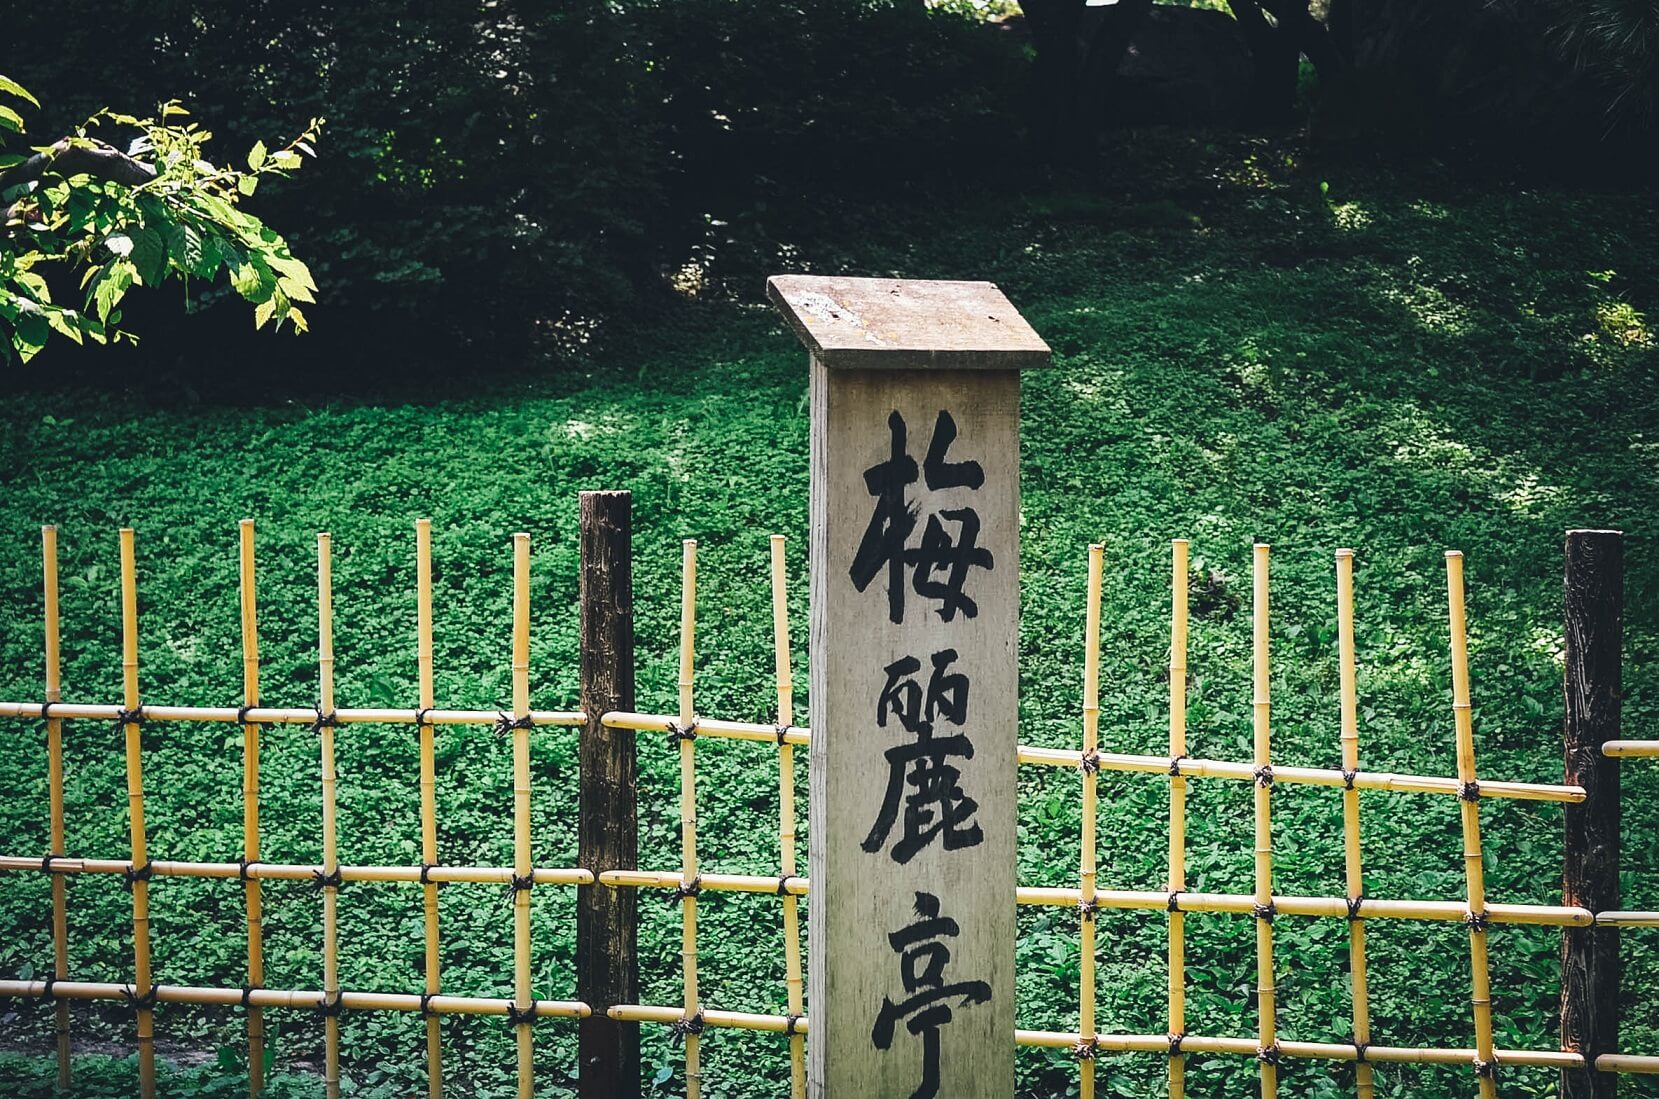 梅麗亭